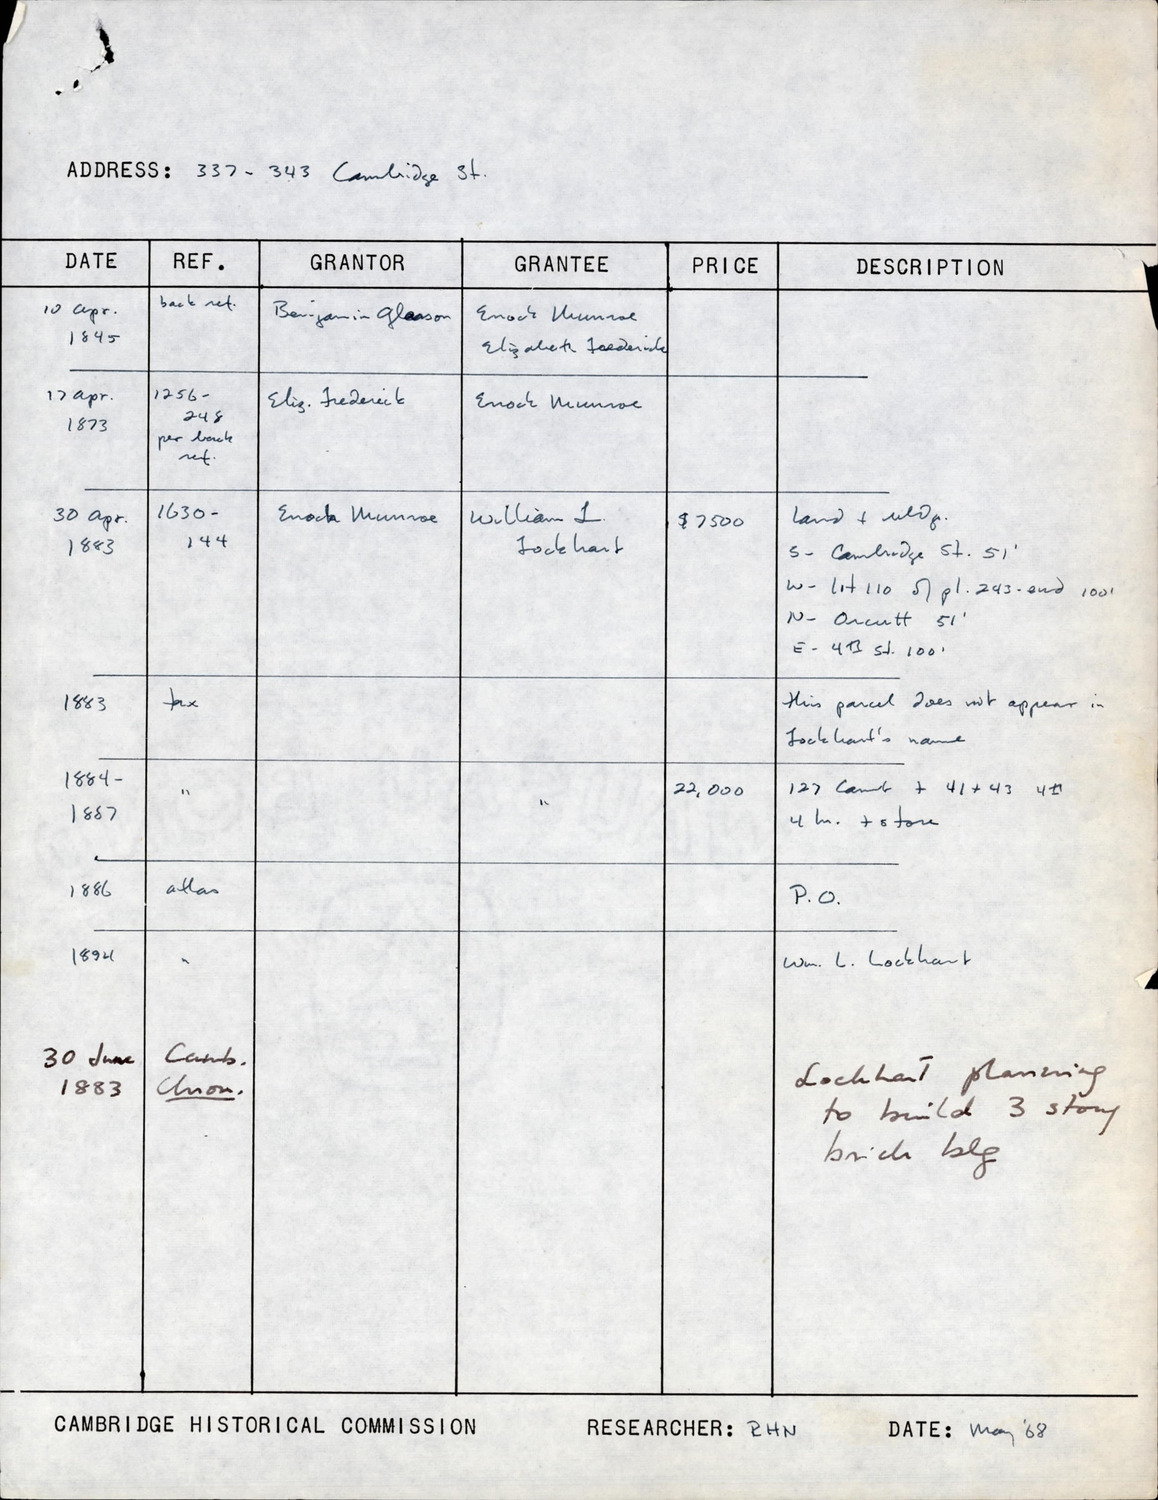 ADDRESS: 337-343 Cambridge St.
DATE REF. GRANTOR GRANTEE PRICE DESCRIPTION
10 Apr. back ref. Benjamin Gleason Enoch Munroe
1845 Elizabeth Frederick
17 Apr. 1256- Eliz. Frederick Enoch Munroe
1873 248
per back
ref.
30 Apr. 1630- Enoch Munroe William L. $7500 land + bldg.
1883 144 Lockhart S- Cambridge St. 51'
W- lot 110 of pl. 243-end 100'
N- Orcutt 51'
E- 4th St. 100'
1883 tax this parcel does not appear in
Lockhart's name
1884- " " 22,000 127 Camb + 41+43 4th
1887 4 hs. + store
1886 atlas P.O.
1894 " Wm. L. Lockhart
30 June Camb. Lockhart planning
1883 Chron. to build 3 story
brick blg
CAMBRIDGE HISTORICAL COMMISSION RESEARCHER: RHN DATE: May '68